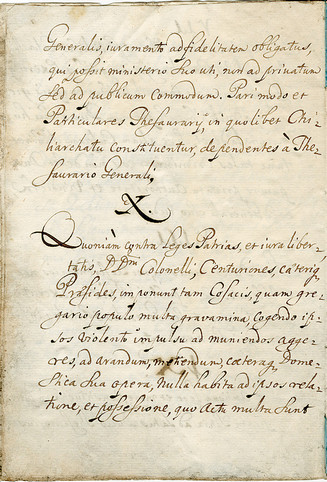 Generalis, iuramento ad fidelitatem obligatus,
qui possit ministerio suo uti, non ad privatum
sed ad publicum Commodum. Pari modo et
Particulares Thesaurarij, in quolibet Chi-
liarchatu constituentur, dependentes à The-
saurario Generali,
X.
Quoniàm contra Leges Patrias, et iura liber-
tatis, DDni Colonelli, Centuriones, cæteriq
Præsides, imponunt tam Cosacis, quam gre-
gario populo multa gravamina, Cogendo ip-
sos violento impulsu ad muniendos agge-
res, ad arandum, metendum, cæteraq Dome-
stica sua opera, Nulla habita ad ipsos rela-
tione, et possessione, quo Actu multa sunt